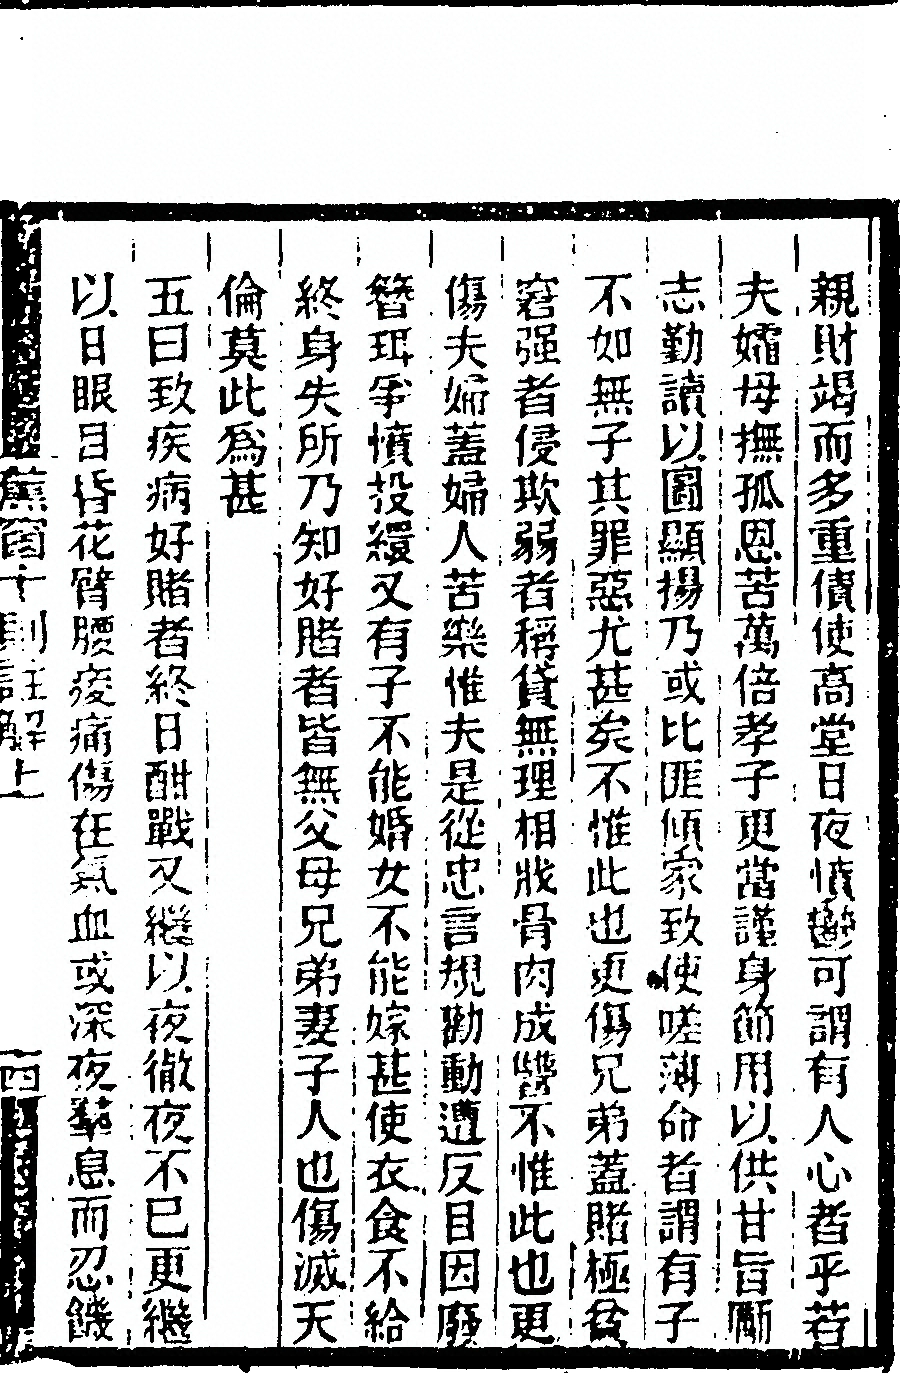 親財竭而多重債使高堂日夜憤鬱可謂有人心者乎若
夫孀母撫孤恩苦萬倍孝子更當謹身節用以供甘旨勵
志勤讀以圖顯揚乃或比匪傾家致使嗟薄命者謂有子
不如無子其罪惡尤甚矣不惟此也更傷兄弟蓋賭極貧
窘强者侵欺弱者稱貸無理相戕骨肉成讐不惟此也更
傷夫婦蓋婦人苦樂惟夫是從忠言規勸動遭反目因廢
簪珥爭憤投繯又有子不能婚女不能嫁甚使衣食不給
終身失所乃知好賭者皆無父母兄弟妻子人也傷滅天
倫莫此爲甚
五曰致疾病好賭者終日酣戰又繼以夜徹夜不已更繼
以日眼目昏花臂腰痠痛傷在氣血或深夜鞂息而忍饑
蕉窗十則註解上
十四